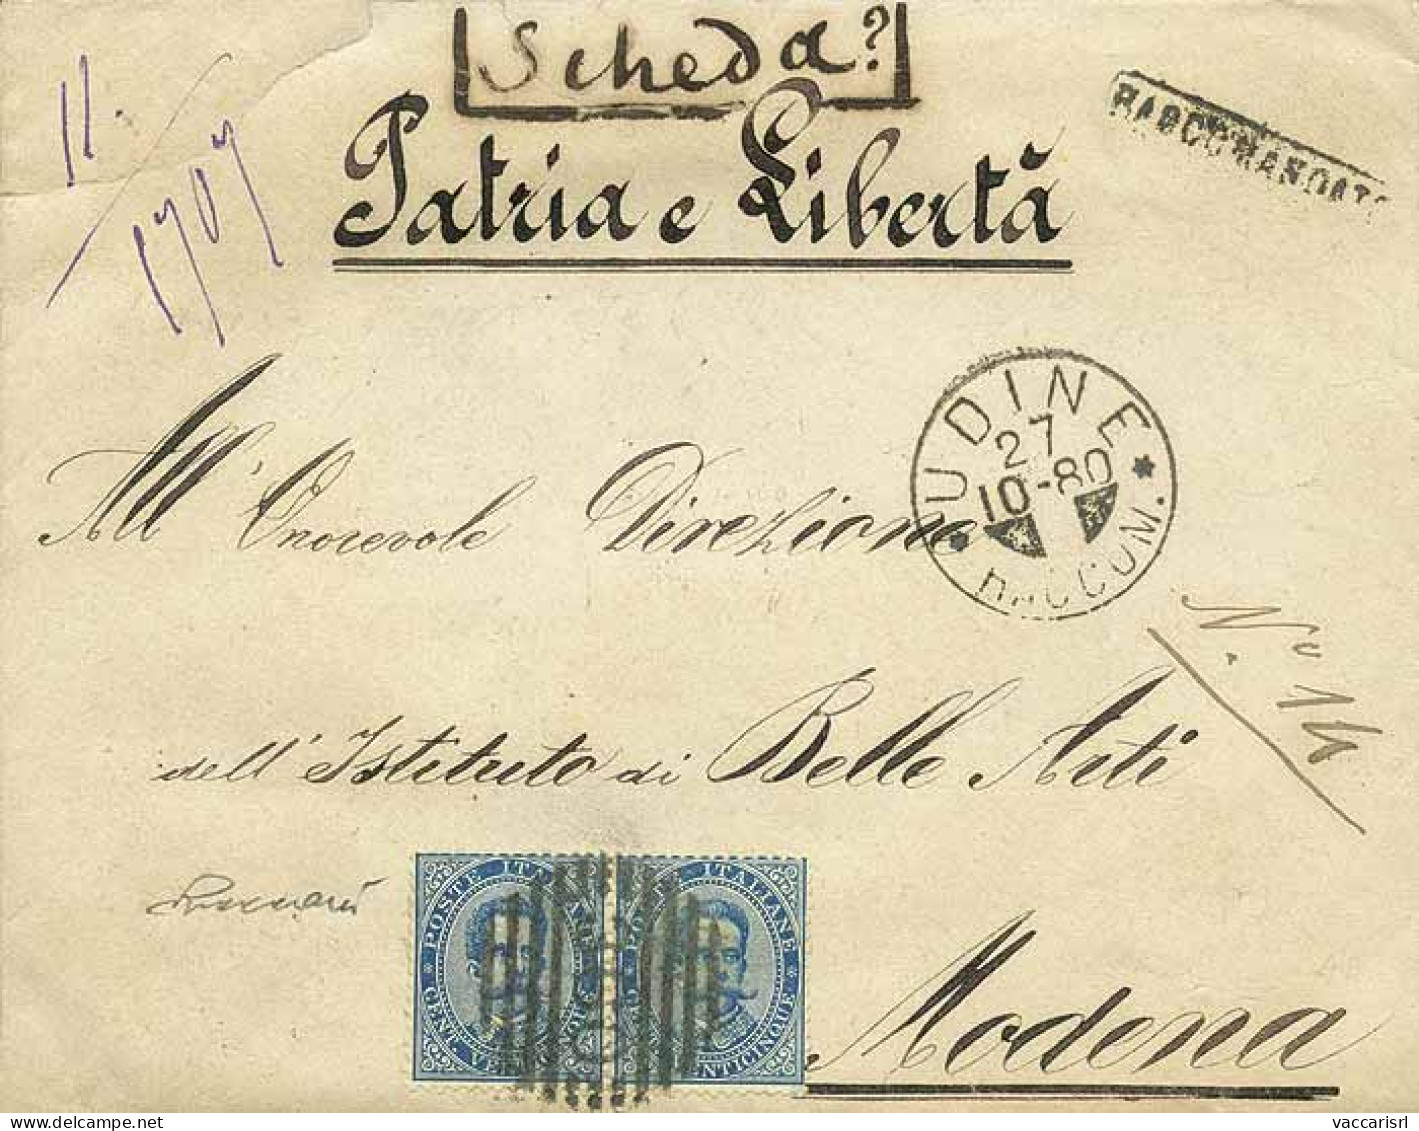 Scheda?
RACCOMANDATO
11.
1707
Patria e Libertà
UDINE
27
10-80
RACCOM.
All' Onorevole Direzione
Nº 14
dell' Istituto di Belle Arti
POSTE ITALIANE
CENT. VENTICINQUE
POSTE ITALIANE
CENT. VENTICINQUE
Modena
vaccarisrl